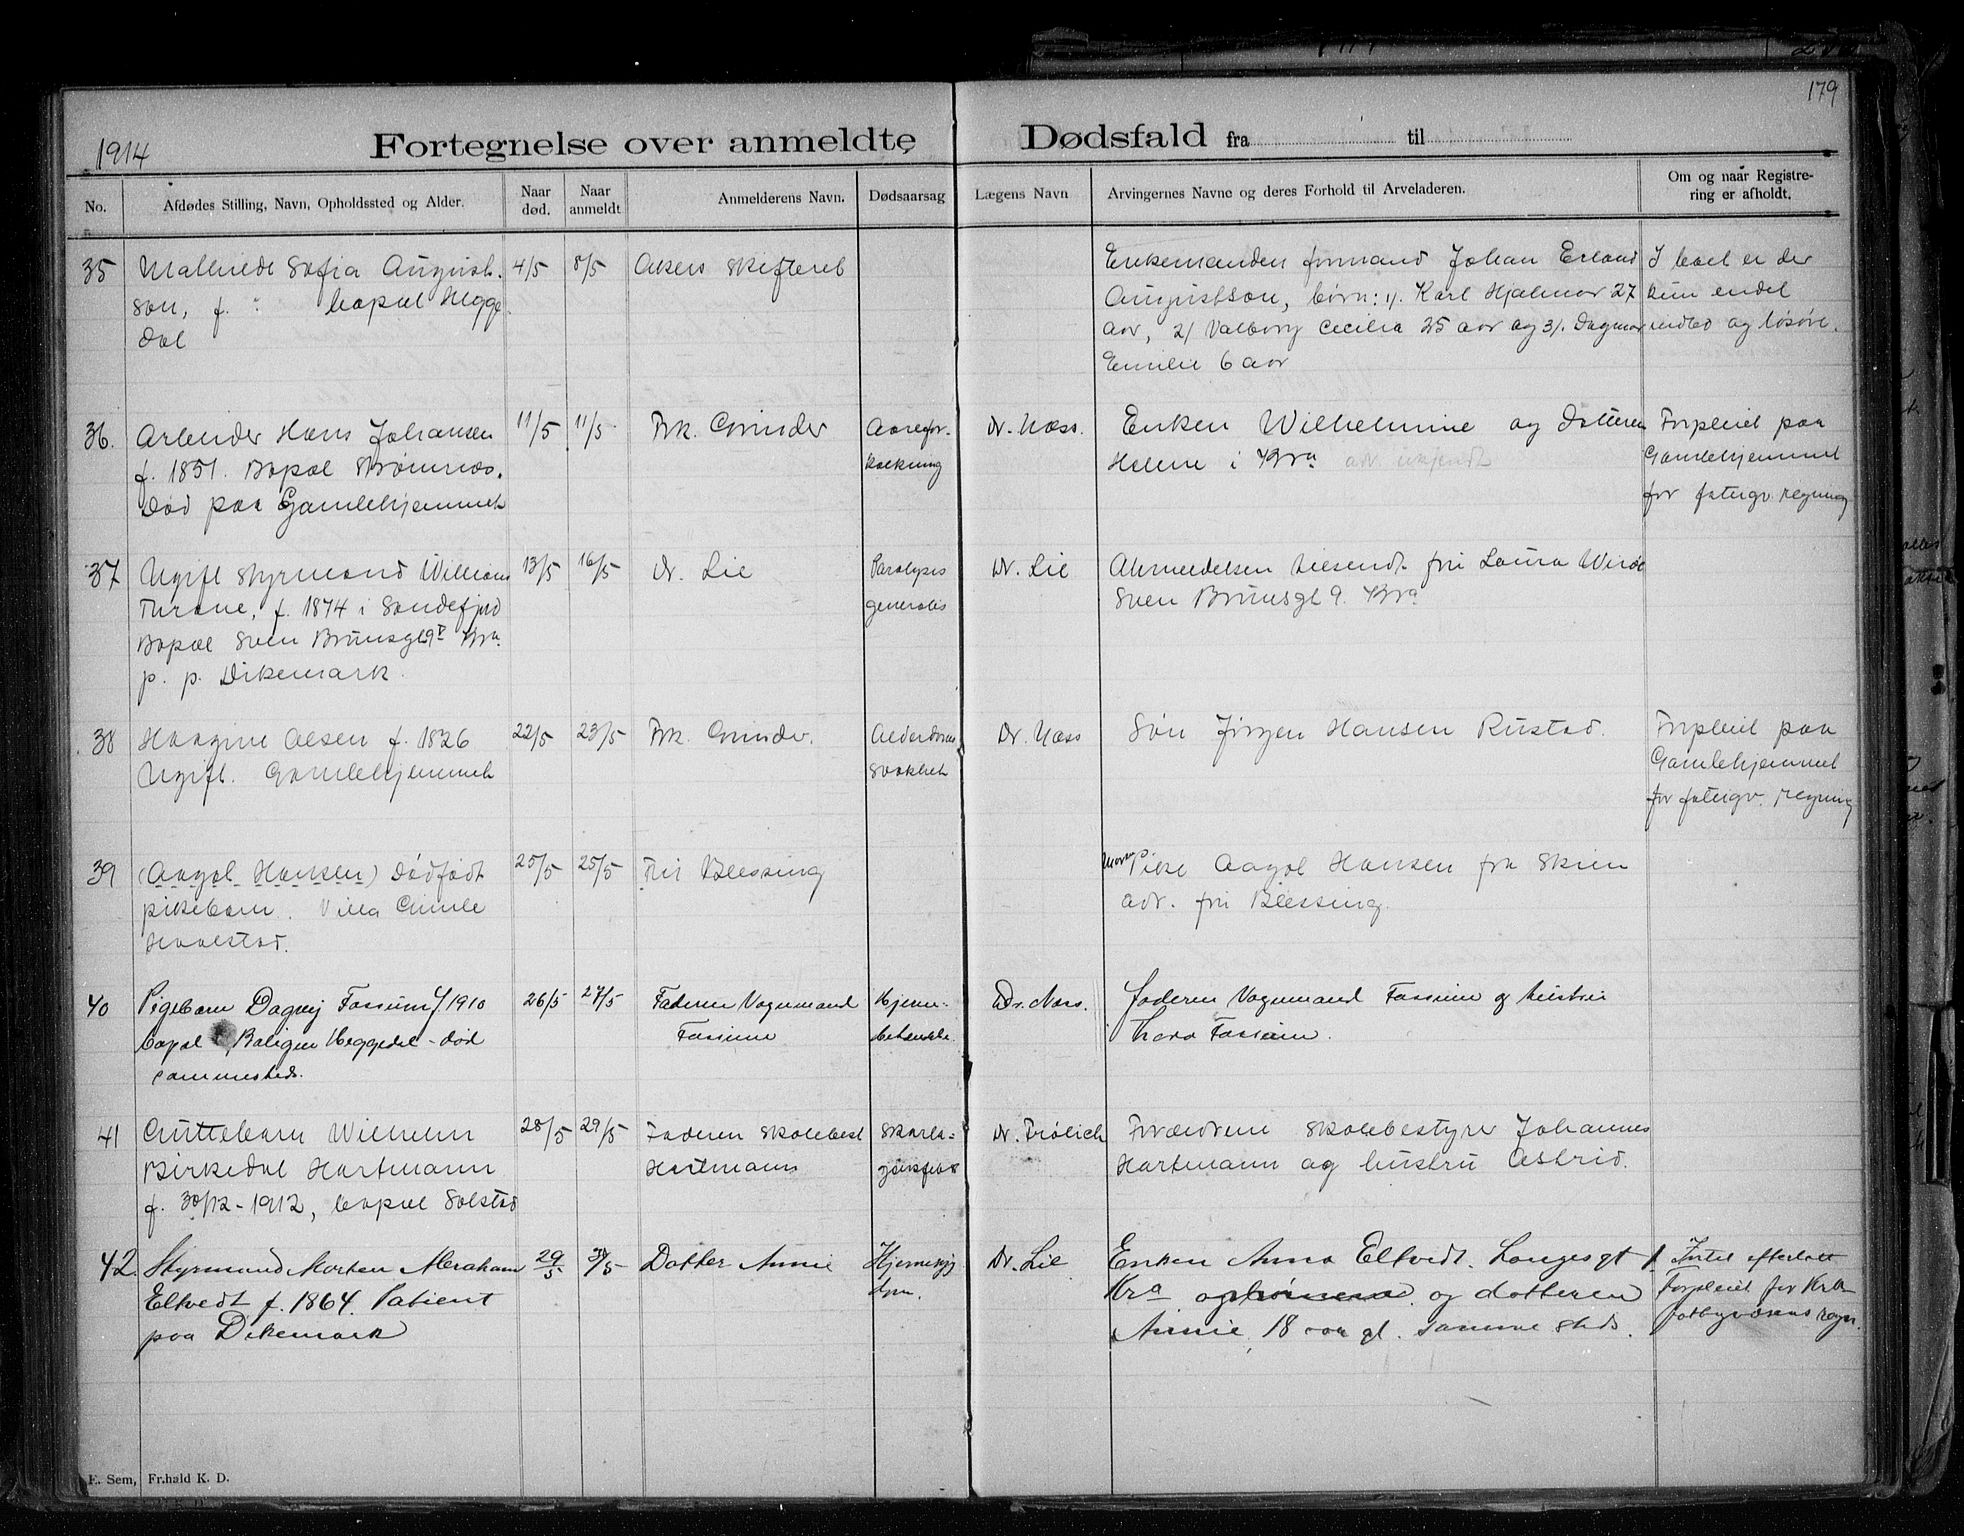 179
1914
Fortegnelse over anmeldte Dødsfald fra til
No.
Afdødes Stilling, Navn, Opholdssted og Alder.
Naar død.
Naar anmeldt
Anmelderens Navn.
Dødsaarsag
Lægens Navn
Arvingernes Navne og deres Forhold til Arveladeren.
Om og naar Registrering er afholdt.
35
Mathilde Sofia August-
son, f. " bopæl Hegge
dal
4/5
8/5
Akers skifteret
Enkemanden formand Johan Erland
Augustson, børn: 1/. Karl Hjalmar 27
aar, 2/ Valborg Cecilia 25 aar og 3/. Dagmar
Emilie 6 aar
I boet er der
kun endel
indbo og løsøre.
36.
Arbeider Hans Johansen
f. 1851. Bopæl Strømnæs.
Død paa Gamlehjemmet
11/5
11/5
Frk. Grinder
Aarefor-
kalkning
Dr. Næss.
Enken Wilhelmine og datteren
Helene i Kra adr. ukjendt
Forpleiet paa
Gamlehjemmet
for fatigv. regning
37
Ugift styrmand William
Thrane, f. 1874 i Sandefjord
Bopæl Sven Brunsgt 9 V Kra
p. p. Dikemark.
13/5
16/5
Dr. Lie
Paralysis
generalis
Dr. Lie
Anmeldelsen tilsendt fru Laura
Sven Brunsgt 9. Kra
38
Haagine Olsen f. 1826
Ugift. Gamlehjemmet
22/5
23/5
Frk. Grinder.
Alderdoms
svakhet
Dr. Næss
Søn Jørgen Hansen Rustad.
Forpleiet paa
Gamlehjemmet
for fatigv. regning
39
(Aagot Hansen) Dødfødt
pikebarn. Villa Granle
Hvalstad.
25/5
25/5
Fru Blessing
Moren
Pike Aagot Hansen fra Skien
adr. fru Blessing.
40
Pigebarn Dagny Fossum f/1910
bopæl Boligen Heggedal - død
sammesteds.
26/5
27/5
Faderen Vognmand
Fossum
Hjerne-
betændelse.
Dr. Næss.
Faderen Vognmand Fossum og hustru
Thora Fossum.
41
Guttebarn Wilhelm
Birkedal Hartmann
f. 30/12-1912, bopæl Solstad
28/5
29/5
Faderen Skolebest
Hartmann
Skarla-
gensfeber
Dr. Frølich
Forældrene skolebestyrer Johannes
Hartmann og hustru Astrid.
42.
Styrmand Morten Abraham
Eltvedt f. 1864. Patient
paa Dikemark
29/5
30/5
Datter Annie
Hjernesyg
dom.
Dr. Lie
Enken Anna Eltvedt. Langesgt 1
Kra og og datteren
Annie, 18 aar gl. samme steds.
Intet efterlatt
forpleiet for Kra
fattigvæsens regn.
E. Sem, Fr.hald K. D.